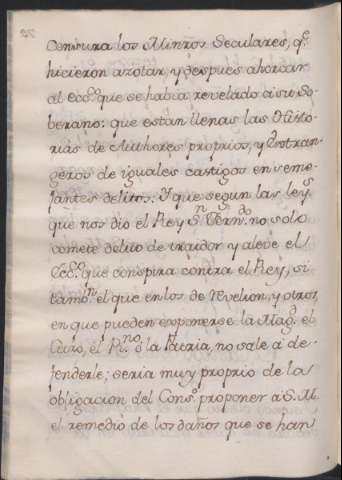 Censura los Minros Seculares, qe.
hicieron azotar, y despues ahorcar
al eccô. que se habia revelado a su So-
berano: que están llenas las Histo-
rias de Authores propios, y Extran-
geros de iguales castigos en seme-
jantes delitos. Y que segun las leys.
que nos dió el Rey Sn. Ferndo. no solo
comete delito de traidor y aleve el
Eccô. que conspira contra el Rey, si
tambn. el que en los de revelion, y otros,
en que pueden exponerse la Magd. el
Cetro, el Rno. ô la Patria, no sale a de-
fenderle; seria muy proprio de la
obligacion del Consº. proponer à S. M.
el remedio de los daños que se han